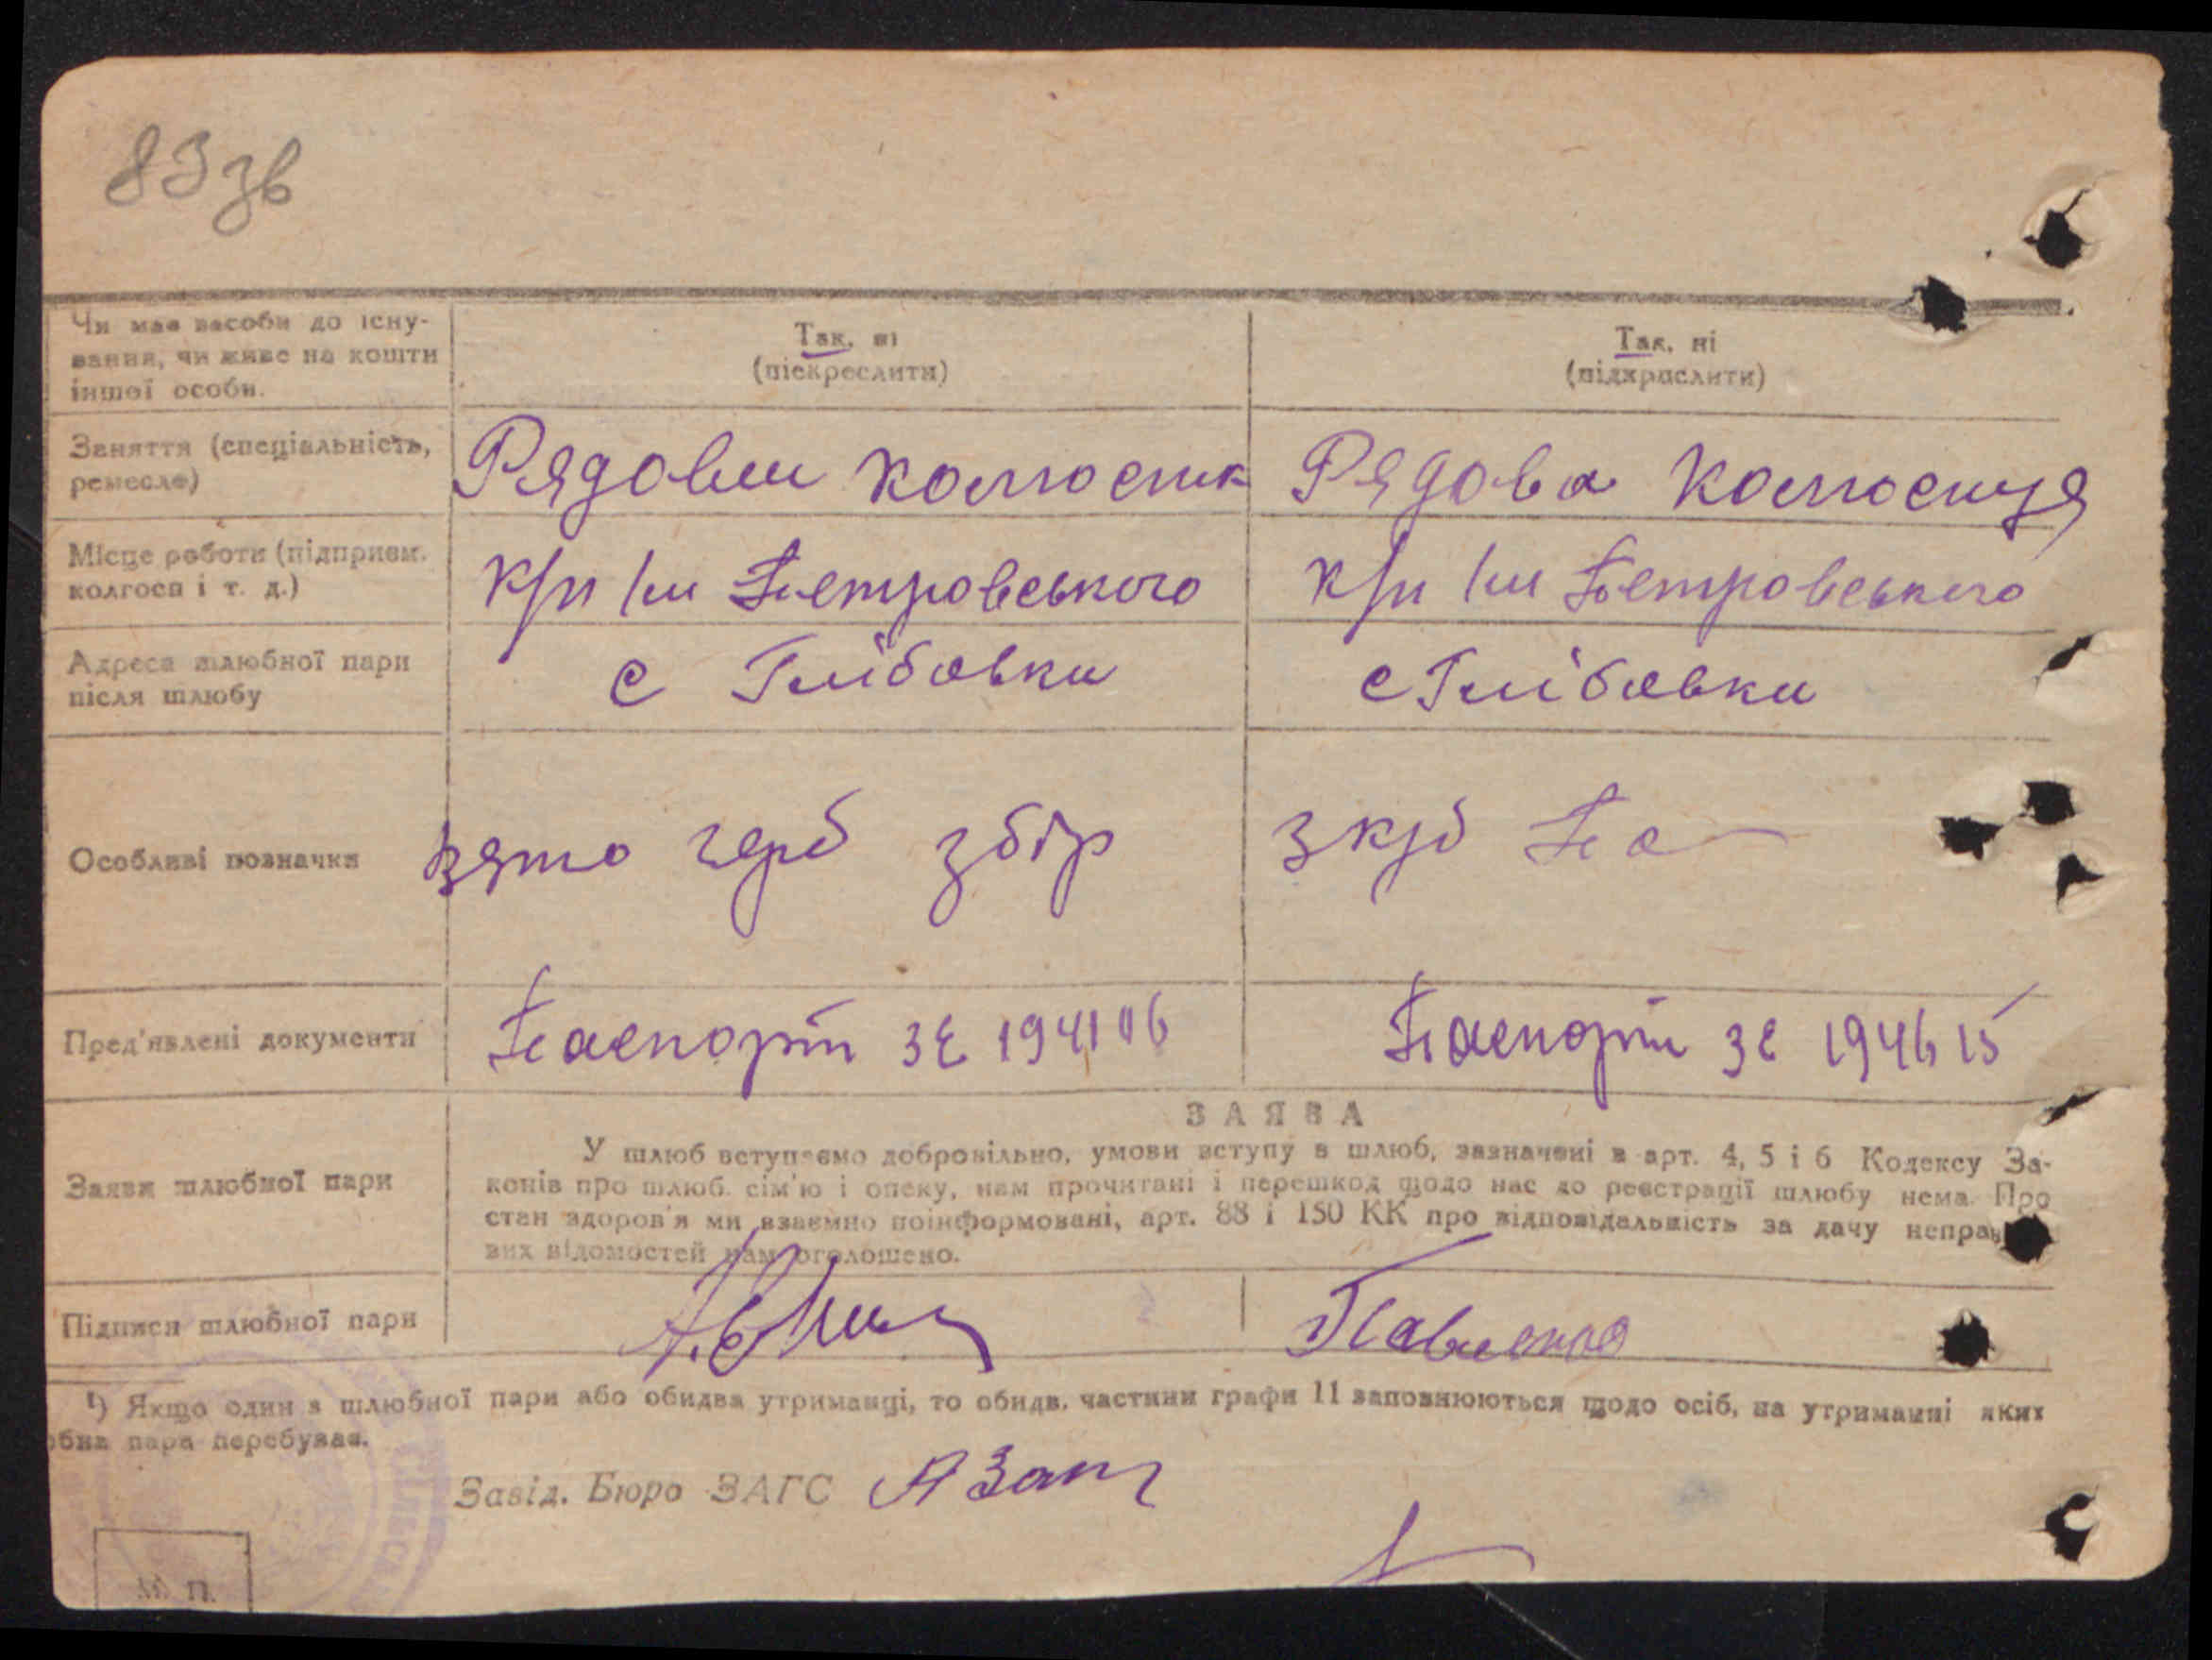 83 зв
Чи має засоби до існу-
вання, чи живе на кошти
іншої особи.
Так, ні
(підкреслити)
Так, ні
(підкреслити)
Заняття (спеціальність,
ремесло)
Рядовий колгоспник
Рядова колгоспниця
Місце роботи (підприєм.
колгосп і т. д.)
к/п ім Петровського
к/п ім Петровського
Адреса шлюбної пари
після шлюбу
с Глібовки
с Глібовки
Особливі позначки
взято герб збір
3 крб
Пред'явлені документи
Паспорт ЗЄ 194106
Паспорт ЗЄ 194615
ЗАЯВА
Заяви шлюбної пари
У шлюб вступаємо добровільно, умови вступу в шлюб, зазначені в арт. 4, 5 і 6 Кодексу За-
конів про шлюб, сім'ю і опеку, нам прочитані і перешкод щодо нас до реєстрації шлюбу нема. Про
стан здоров'я ми взаємно поінформовані, арт. 88 і 150 КК про відповідальність за дачу неправ
вих відомостей нам оголошено.
Підписи шлюбної пари
Павленко
¹) Якщо один з шлюбної пари або обидва утриманці, то обидв. частини графи 11 заповнюються щодо осіб, на утриманні яких
бна пара перебуває.
Завід. Бюро ЗАГС
М. П.